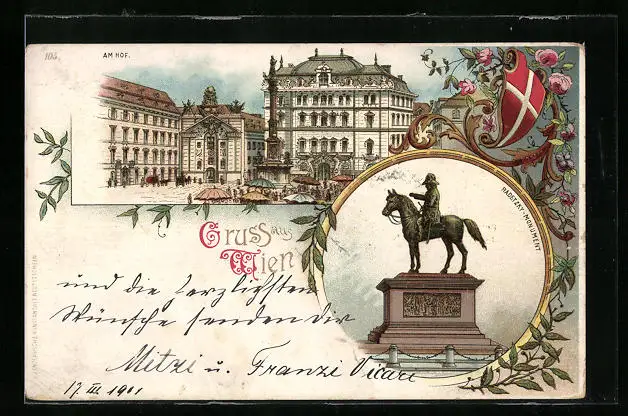 105.
AM HOF.
RADETZKY-MONUMENT
Gruss aus
Wien
und die herzligsten
Wünsche senden dir
Mitzi u. Franzi Vicari
17. III 1901